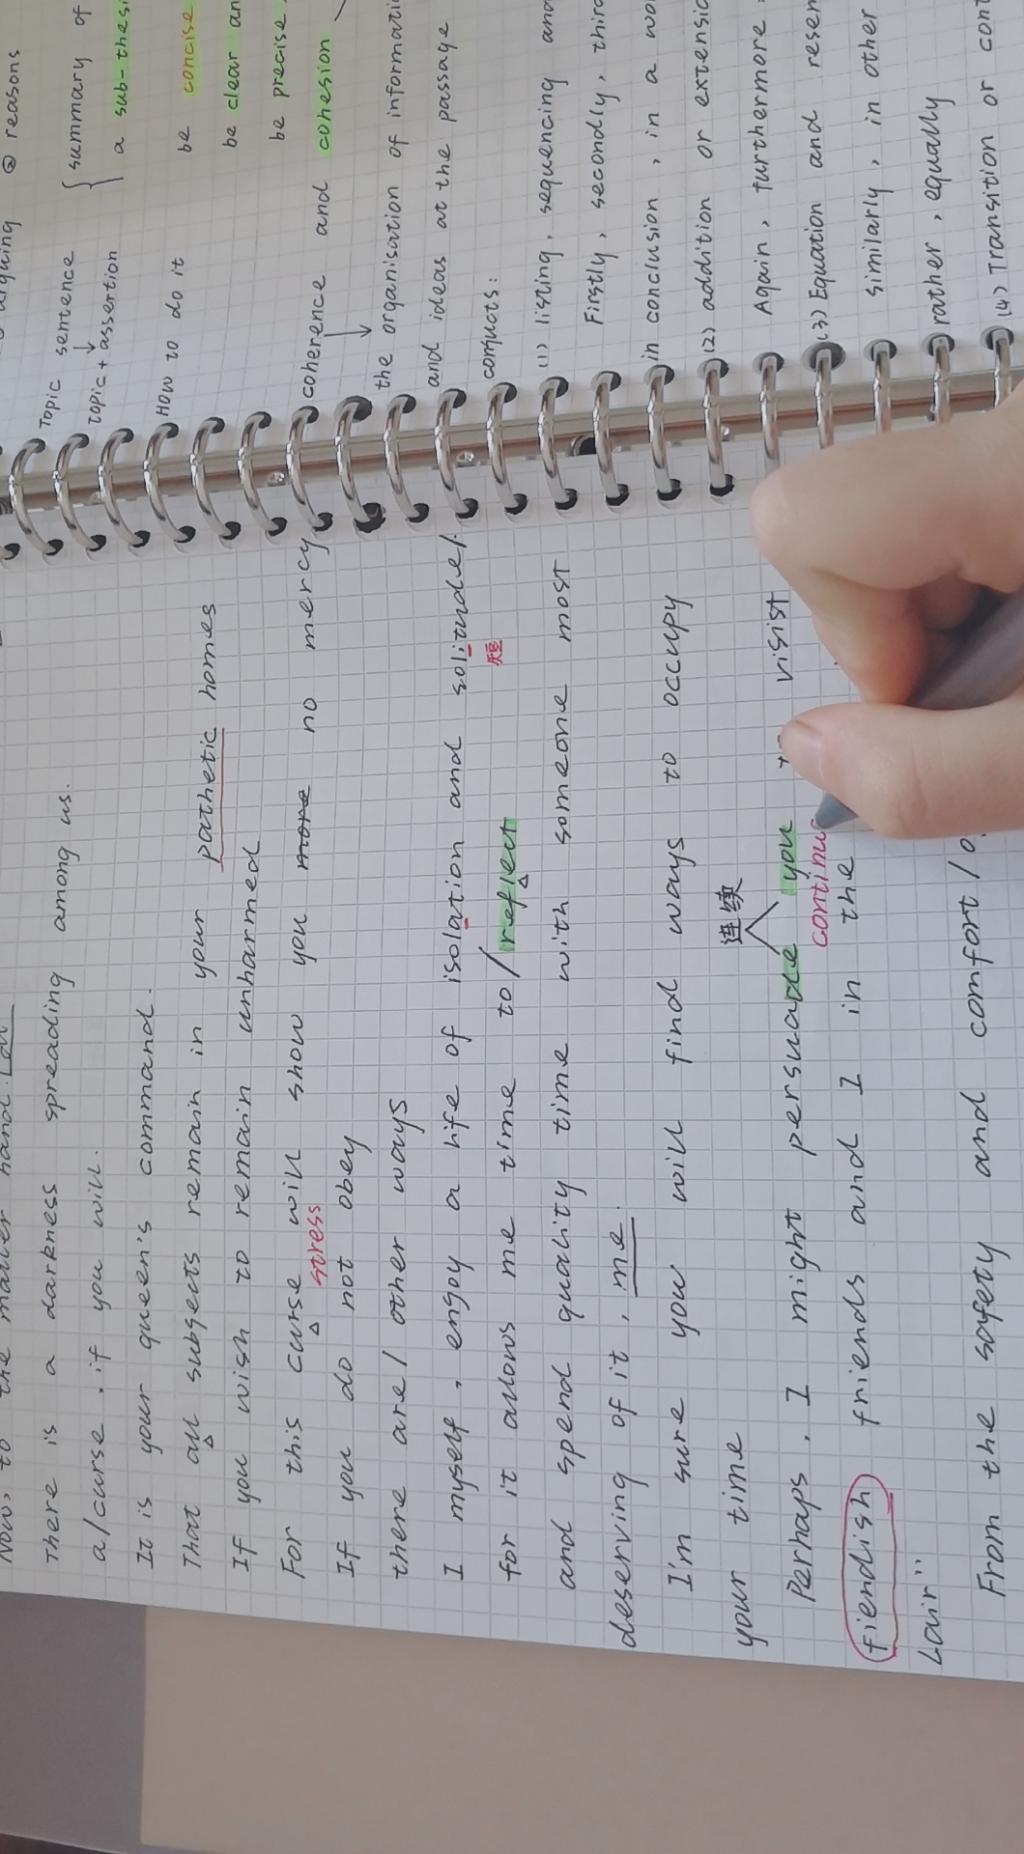 There is a darkness spreading among us.
a/curse. if you will.
It is your queen's command.
That all subjects remain in your pathetic homes
If you wish to remain unharmed
For this curse will show you more no mercy
stress
If you do not obey
there are/ other ways
I myself, engoy a life of isolation and solitude/.
短
for it allows me time to/reflect
and spend quality time with someone most
deserving of it, me.
I'm sure you will find ways to occupy
your time
连续
Perhaps, I might persuade you visist
continu
fiendish friends and I in the
Lair"
From the safety and comfort/
reasons
Topic sentence
summary of
topic + assertion
a sub-thesi
How to do it
be concise
be clear an
be precise
coherence and cohesion
the organisation of informati
and ideas at the passage
conjucts:
(1) listing, sequencing and
Firstly, secondly, third
in conclusion, in a wo
(2) addition or extensio
Again, furthermore
(3) Equation and resem
similarly, in other
rather, equally
(4) Transition or cont